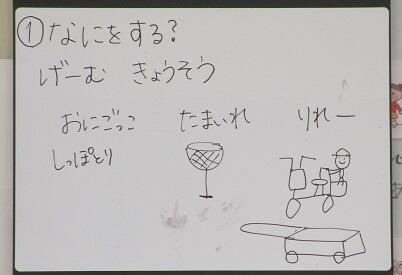 ①なにをする?
げーむ きょうそう
おにごっこ たまいれ りれー
しっぽとり